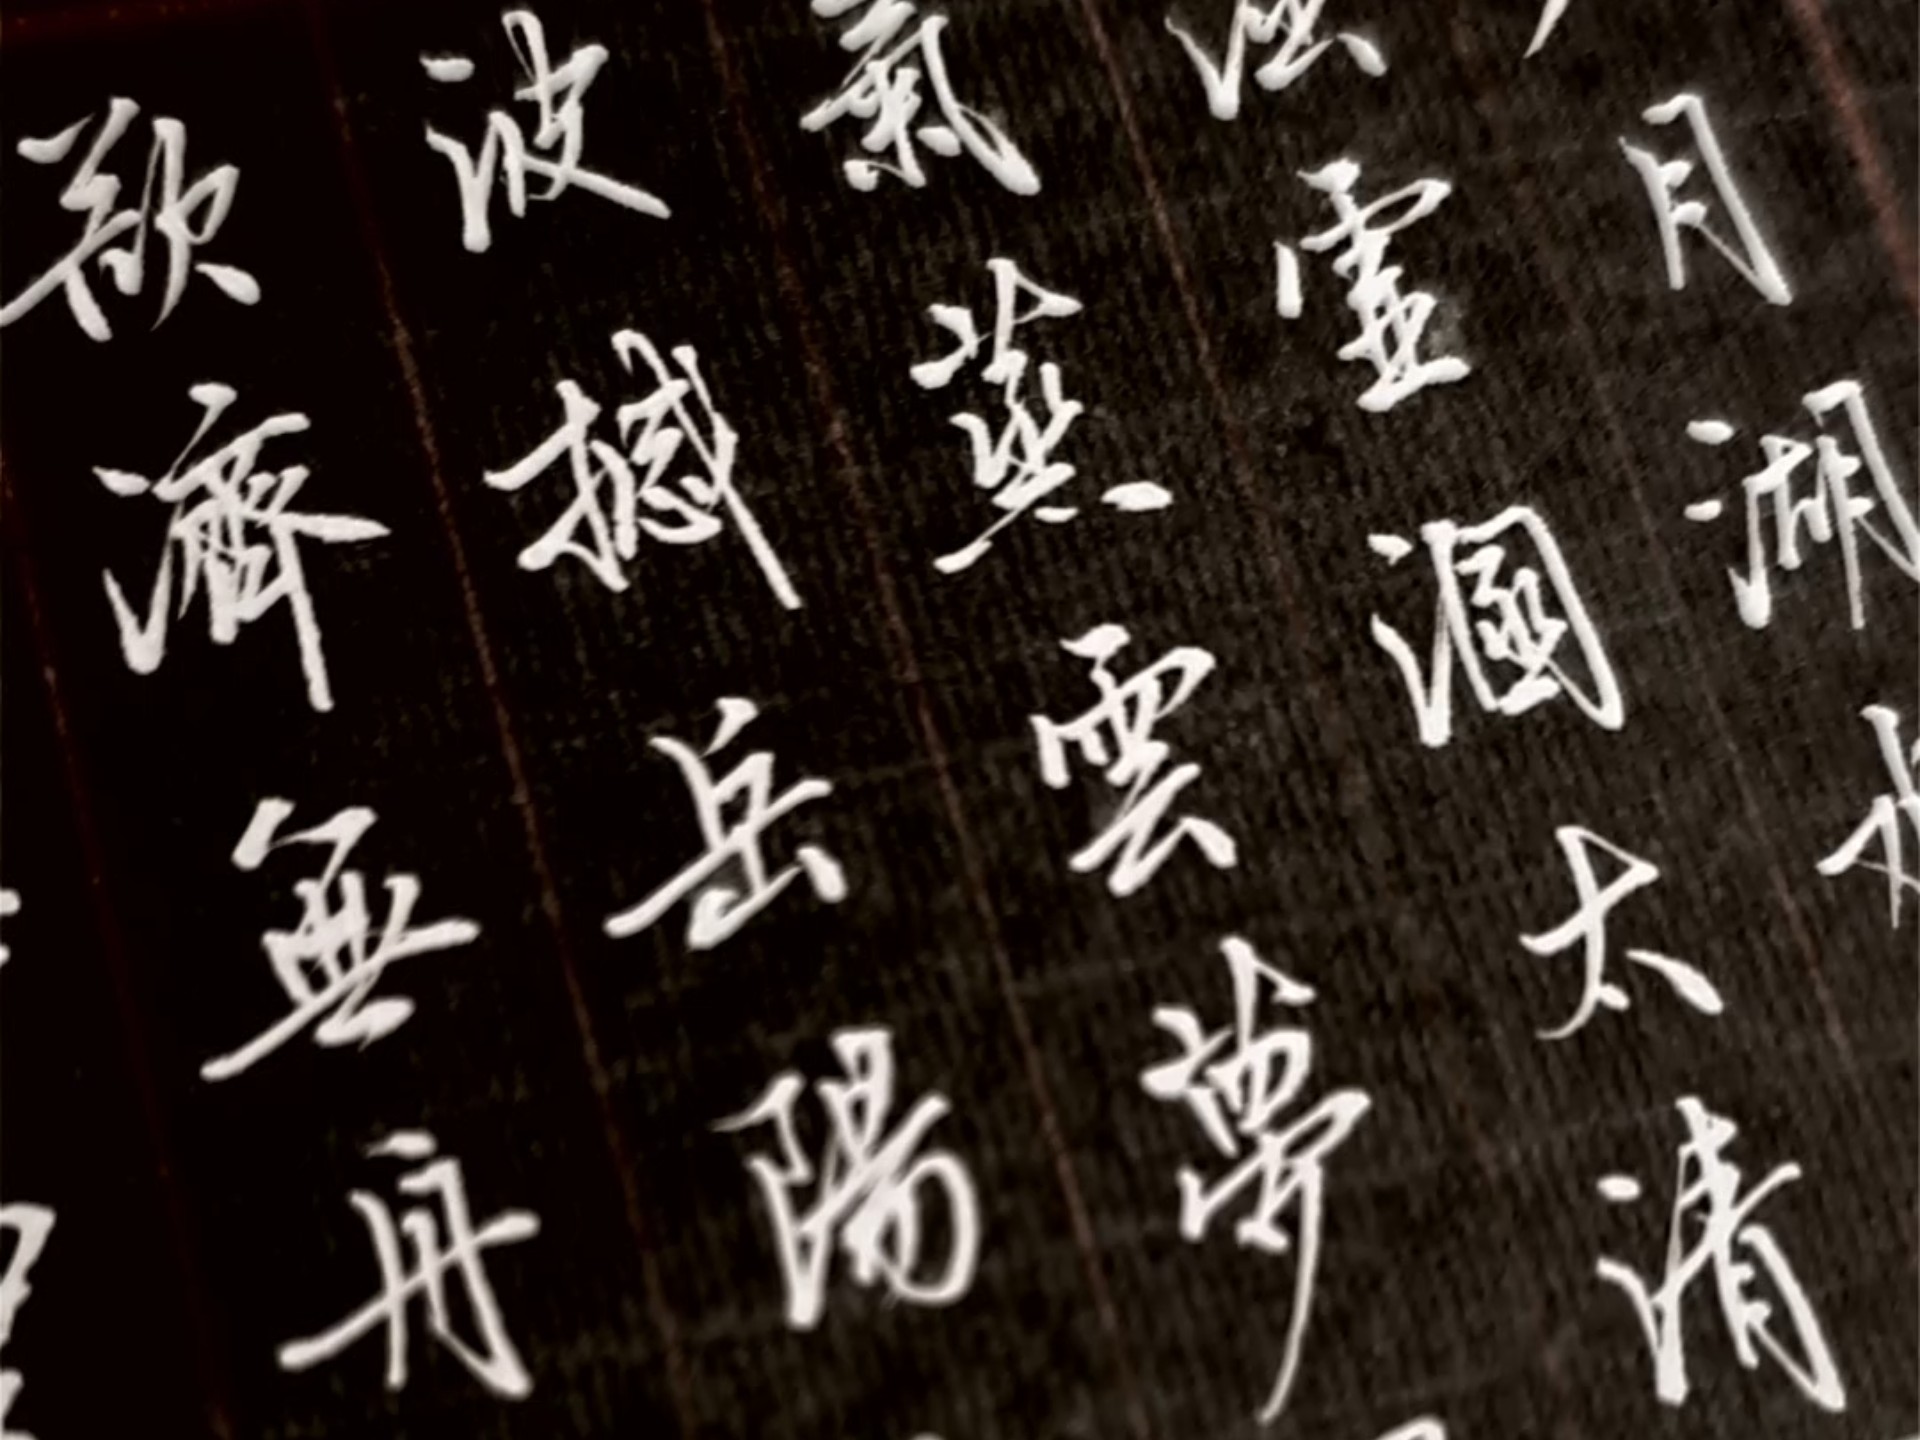 月湖水
涵虛溷太清
氣蒸雲夢
波撼岳陽
欲濟無舟